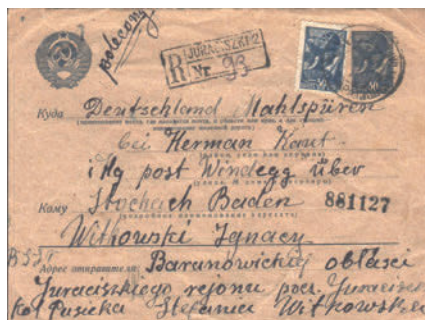 polecony
JURACISZKI 2
R Nr. 93
50 50
Куда Deutschland Mahlspüren
bei Herman Kaut
i Hg post Windegg über
Кому Stochach Baden 881127
Witkowski Ignacy
Адрес отправителя Baranowickiej oblasci
Juraciszkiego rejonu pocz. Juraciszki
kol Pasieka Stefania Witkowska